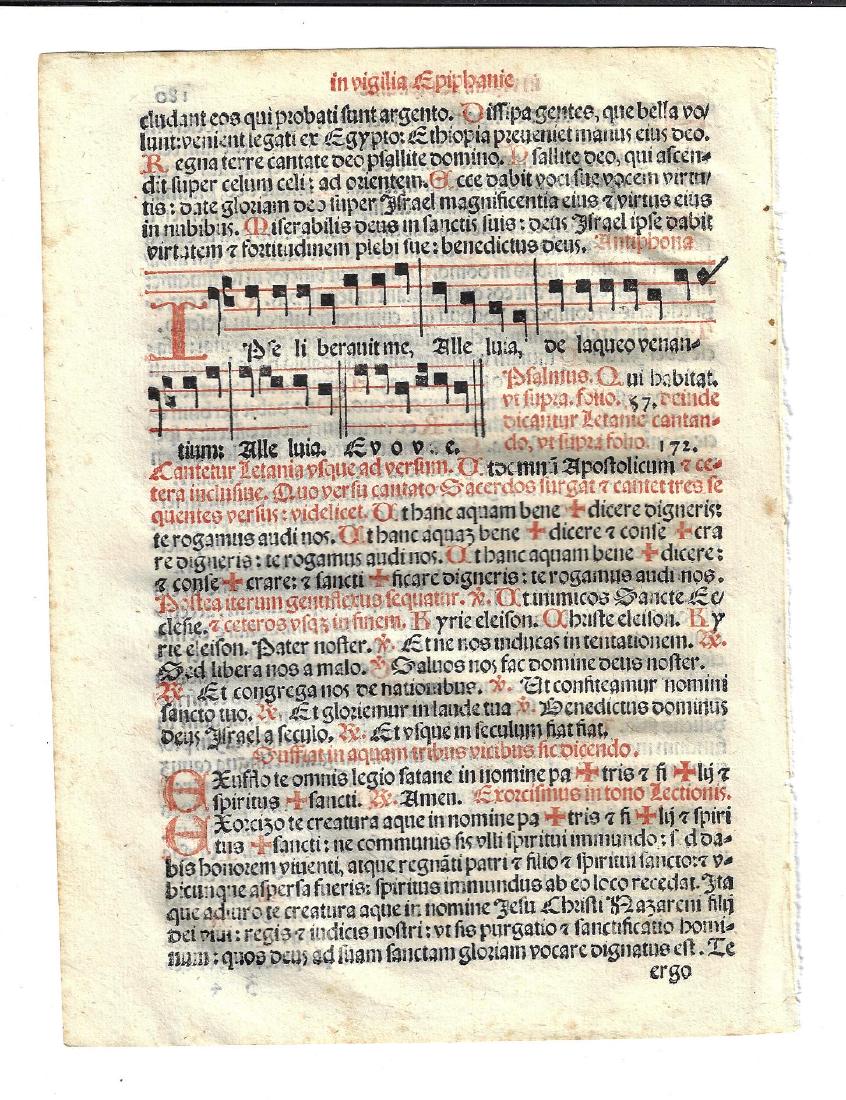 in vigilia Epiphanie
cludant eos qui probati sunt argento. Dissipa gentes, que bella vo/
lunt: venient legati ex Egypto: Ethiopia preueniet manus eius deo.
Regna terre cantate deo psallite domino. Psallite deo, qui ascen-
dit super celum celi: ad orientem. Ecce dabit voci sue vocem virtu/
tis: date gloriam deo super Israel magnificentia eius & virtus eius
in nubibus. Mirabilis deus in sanctis suis: deus Israel ipse dabit
virtutem & fortitudinem plebi sue: benedictus deus. Antiphona
IPse li berauit me, Alle luia, de laqueo venan-
Psalmus. Qui habitat.
vt supra. folio. 57. deinde
dicantur Letanie cantan-
tium: Alle luia. Evovae.
do, vt supra folio. 172.
Cantetur Letania vsque ad versum. Ut domnū Apostolicum & ce-
tera inclusiue. Quo versu cantato Sacerdos surgat & cantet tres se
quentes versus: videlicet. Ut hanc aquam bene ✠ dicere digneris:
te rogamus audi nos. Ut hanc aquaȝ bene ✠ dicere & conse ✠ cra
re digneris: te rogamus audi nos. Ut hanc aquam bene ✠ dicere:
& conse ✠ crare: & sancti ✠ ficare digneris: te rogamus audi nos.
Postea iterum genuflexus sequatur. ℣. Ut inimicos Sancte Ec/
clesie. & ceteros vsqȝ in finem. Kyrie eleison. Christe eleison. Ky
rie eleison. Pater noster. ℣. Et ne nos inducas in tentationem. ℟.
Sed libera nos a malo. ℣ Saluos nos fac domine deus noster.
℟. Et congrega nos de nationibus. ℣. Ut confiteamur nomini
sancto tuo. ℟. Et gloriemur in laude tua ℣. Benedictus dominus
deus Israel a seculo. ℟. Et vsque in seculum fiat fiat.
Sufflat in aquam tribus vicibus sic dicendo.
EXufflo te omnis legio satane in nomine pa ✠ tris & fi ✠ lij &
spiritus ✠ sancti. ℟. Amen. Exorcismus in tono Lectionis.
EXorcizo te creatura aque in nomine pa ✠ tris & fi ✠ lij & spiri
tus ✠ sancti: ne communis sis vlli spiritui immundo: s d da-
bis honorem viuenti, atque regnāti patri & filio & spiritui sancto: & v-
bicunque aspersa fueris: spiritus immundus ab eo loco recedat. Ita
que adiuro te creatura aque in nomine Jesu Christi Nazareni filij
dei viui: regis & iudicis nostri: vt sis purgatio & sanctificatio homi-
num: quos deus ad suam sanctam gloriam vocare dignatus est. Te
ergo